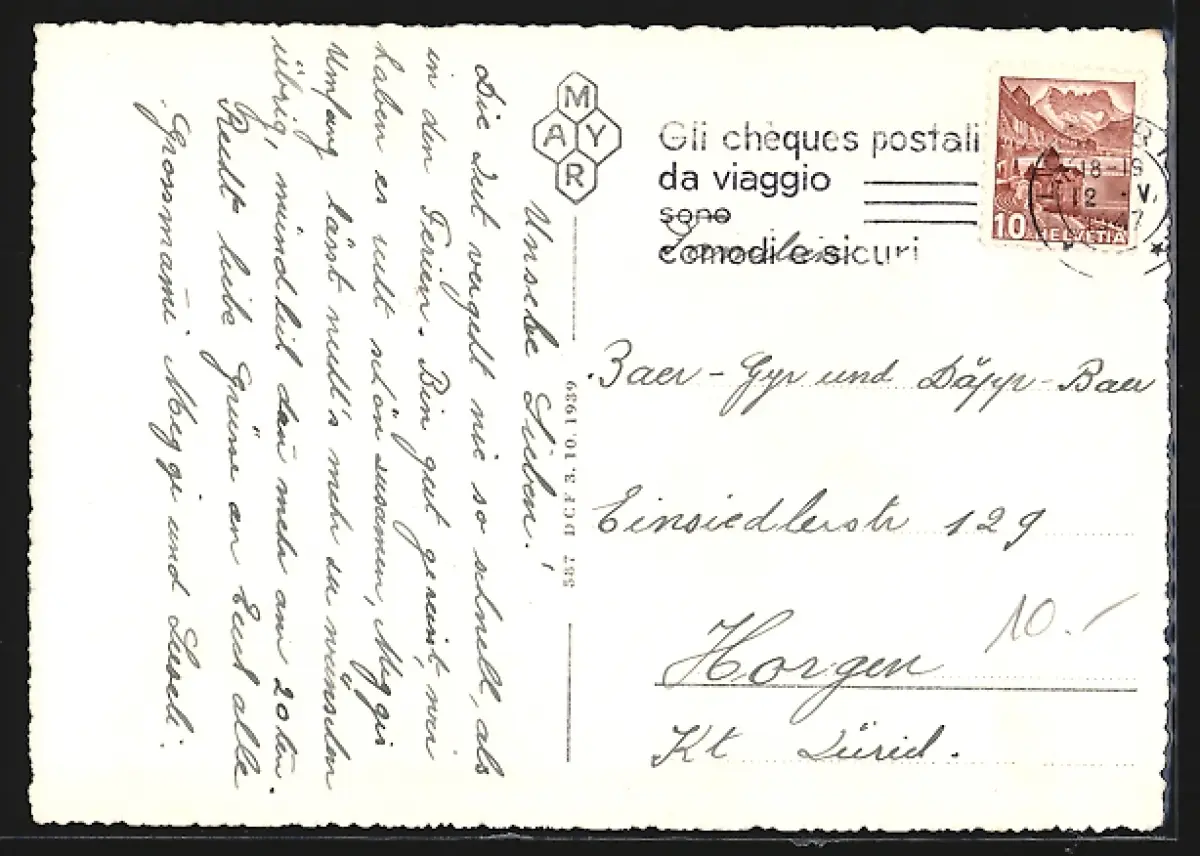 Unsere Lieben!
Die Zeit vergeht nie so schnell, als
in den Ferien. Bin gut gereist, wir
haben es recht schön zusamen, Meggis
Umfang lässt nicht's mehr zu wünschen
übrig, mindestens dañ mehr am 20ten.
Recht liebe Grüsse an Euch alle
Grossmami Meggi und
MYAR
587 DCF 3.10.1939
Gli chèques postali
da viaggio
sono
comodi e sicuri
18-19
12 V.
47
10 HELVETIA
Familien
Baer-Gyr und Däpp-Baer
Einsiedlerstr 129
Horgen
10.-
Kt Zürich.